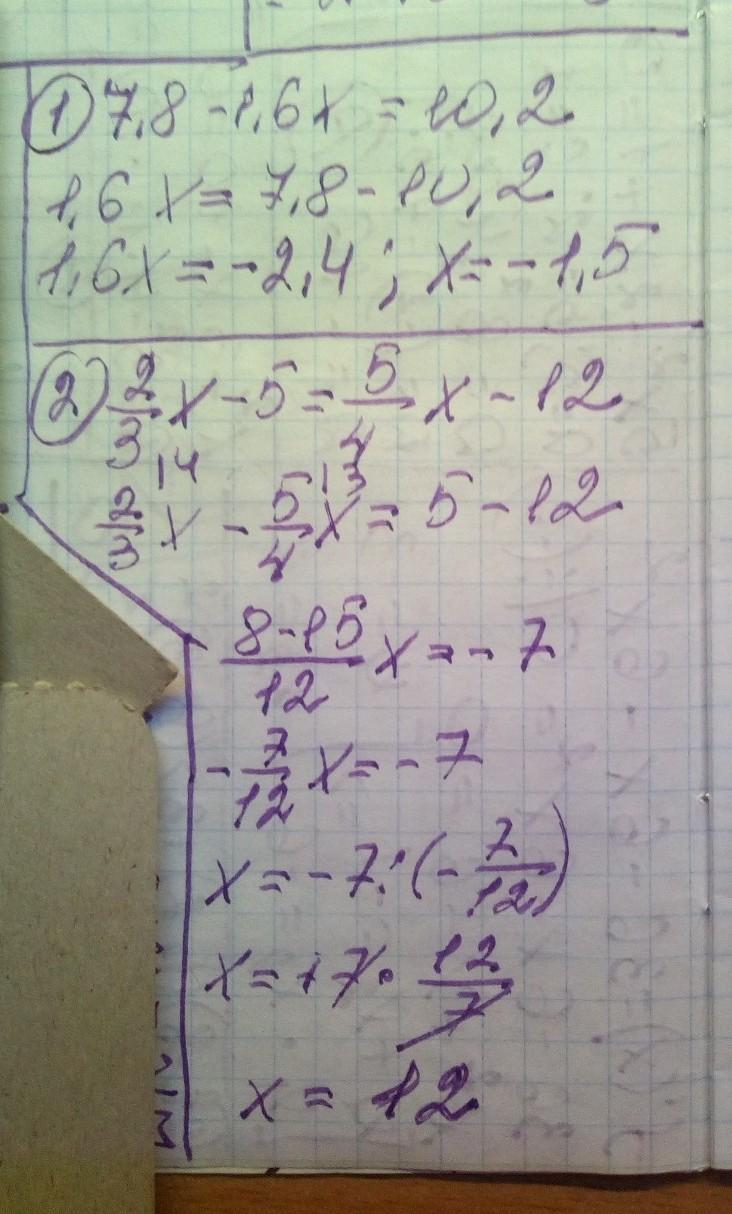 ① 7,8 - 1,6x = 10,2
1,6 x = 7,8 - 10,2
1,6x = -2,4 ; x = -1,5
② 2/3 x - 5 = 5/4 x - 12
2/3 |4 x - 5/4 |3 x = 5 - 12
(8-15)/12 x = - 7
- 7/12 x = - 7
x = - 7 : (- 7/12)
x = +7 · 12/7
x = 12